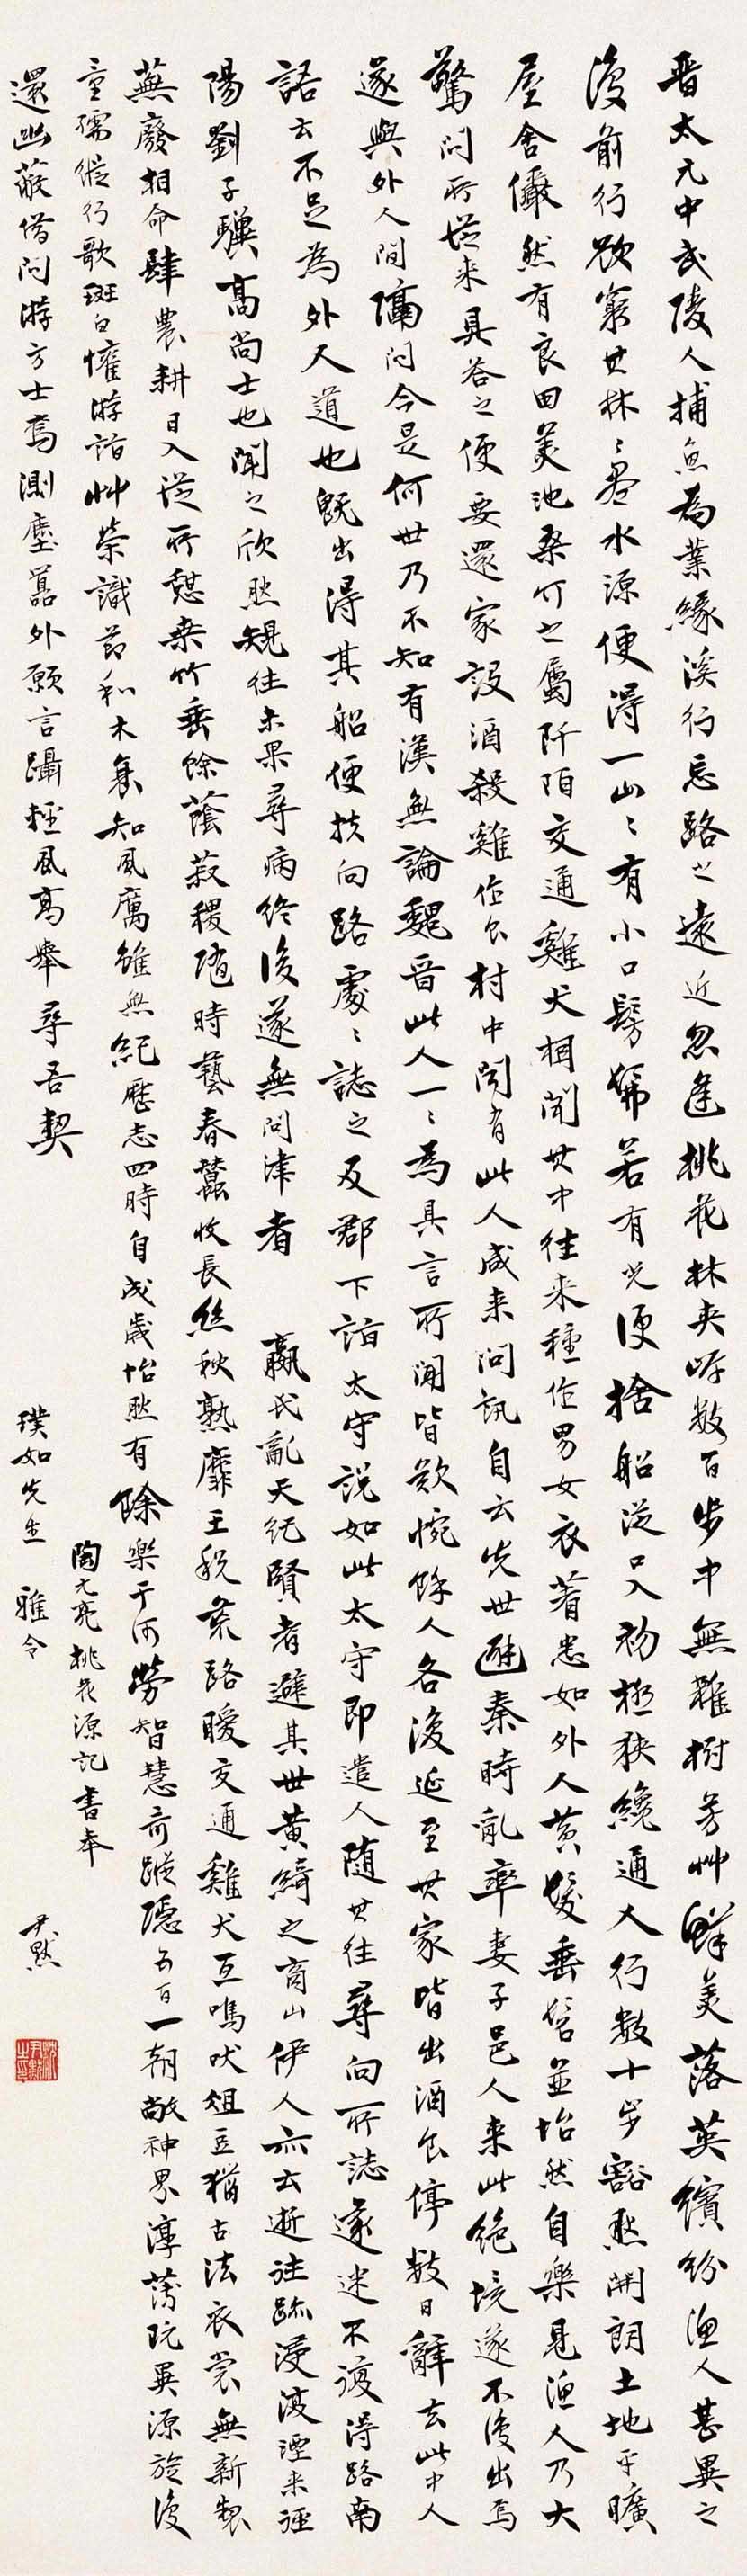 晋太元中武陵人捕魚為業緣溪行忘路之遠近忽逢桃花林夾岸數百步中無雜樹芳艸鮮美落英繽紛漁人甚異之
復前行欲窮其林〻盡水源便得一山〻有小口髣髴若有光便捨船從口入初極狹纔通人行數十步豁然開朗土地平曠
屋舍儼然有良田美池桑竹之屬阡陌交通雞犬相聞其中往来種作男女衣著悉如外人黄髮垂髫並怡然自樂見漁人乃大
驚問所從来具答之便要還家設酒殺雞作食村中聞有此人咸来問訊自云先世避秦時亂率妻子邑人来此絶境遂不復出焉
遂與外人間隔問今是何世乃不知有漢無論魏晋此人一〻為具言所聞皆歎惋餘人各復延至其家皆出酒食停數日辭去此中人
語云不足為外人道也既出得其船便扶向路處〻誌之及郡下詣太守説如此太守即遣人随其往尋向所誌遂迷不復得路南
陽劉子驥高尚士也聞之欣然規往未果尋病終後遂無問津者　嬴氏亂天紀賢者避其世黄綺之商山伊人亦云逝往跡浸復湮来逕
蕪廢相命肆農耕日入從所憩桒竹垂餘蔭菽稷随時藝春蠶收長絲秋熟靡王税荒路曖交通雞犬互鳴吠俎豆猶古法衣裳無新製
童孺縱行歌斑白懽游詣艸榮識節和木衰知風厲雖無紀歷志四時自成歲怡然有餘樂于何勞智慧奇蹤隱五百一朝敞神界淳薄既異源旋復
還幽蔽借問游方士焉測塵囂外願言躡輕風高舉尋吾契
陶元亮桃花源記書奉
璞如先生　雅令
尹默
沈尹默之印